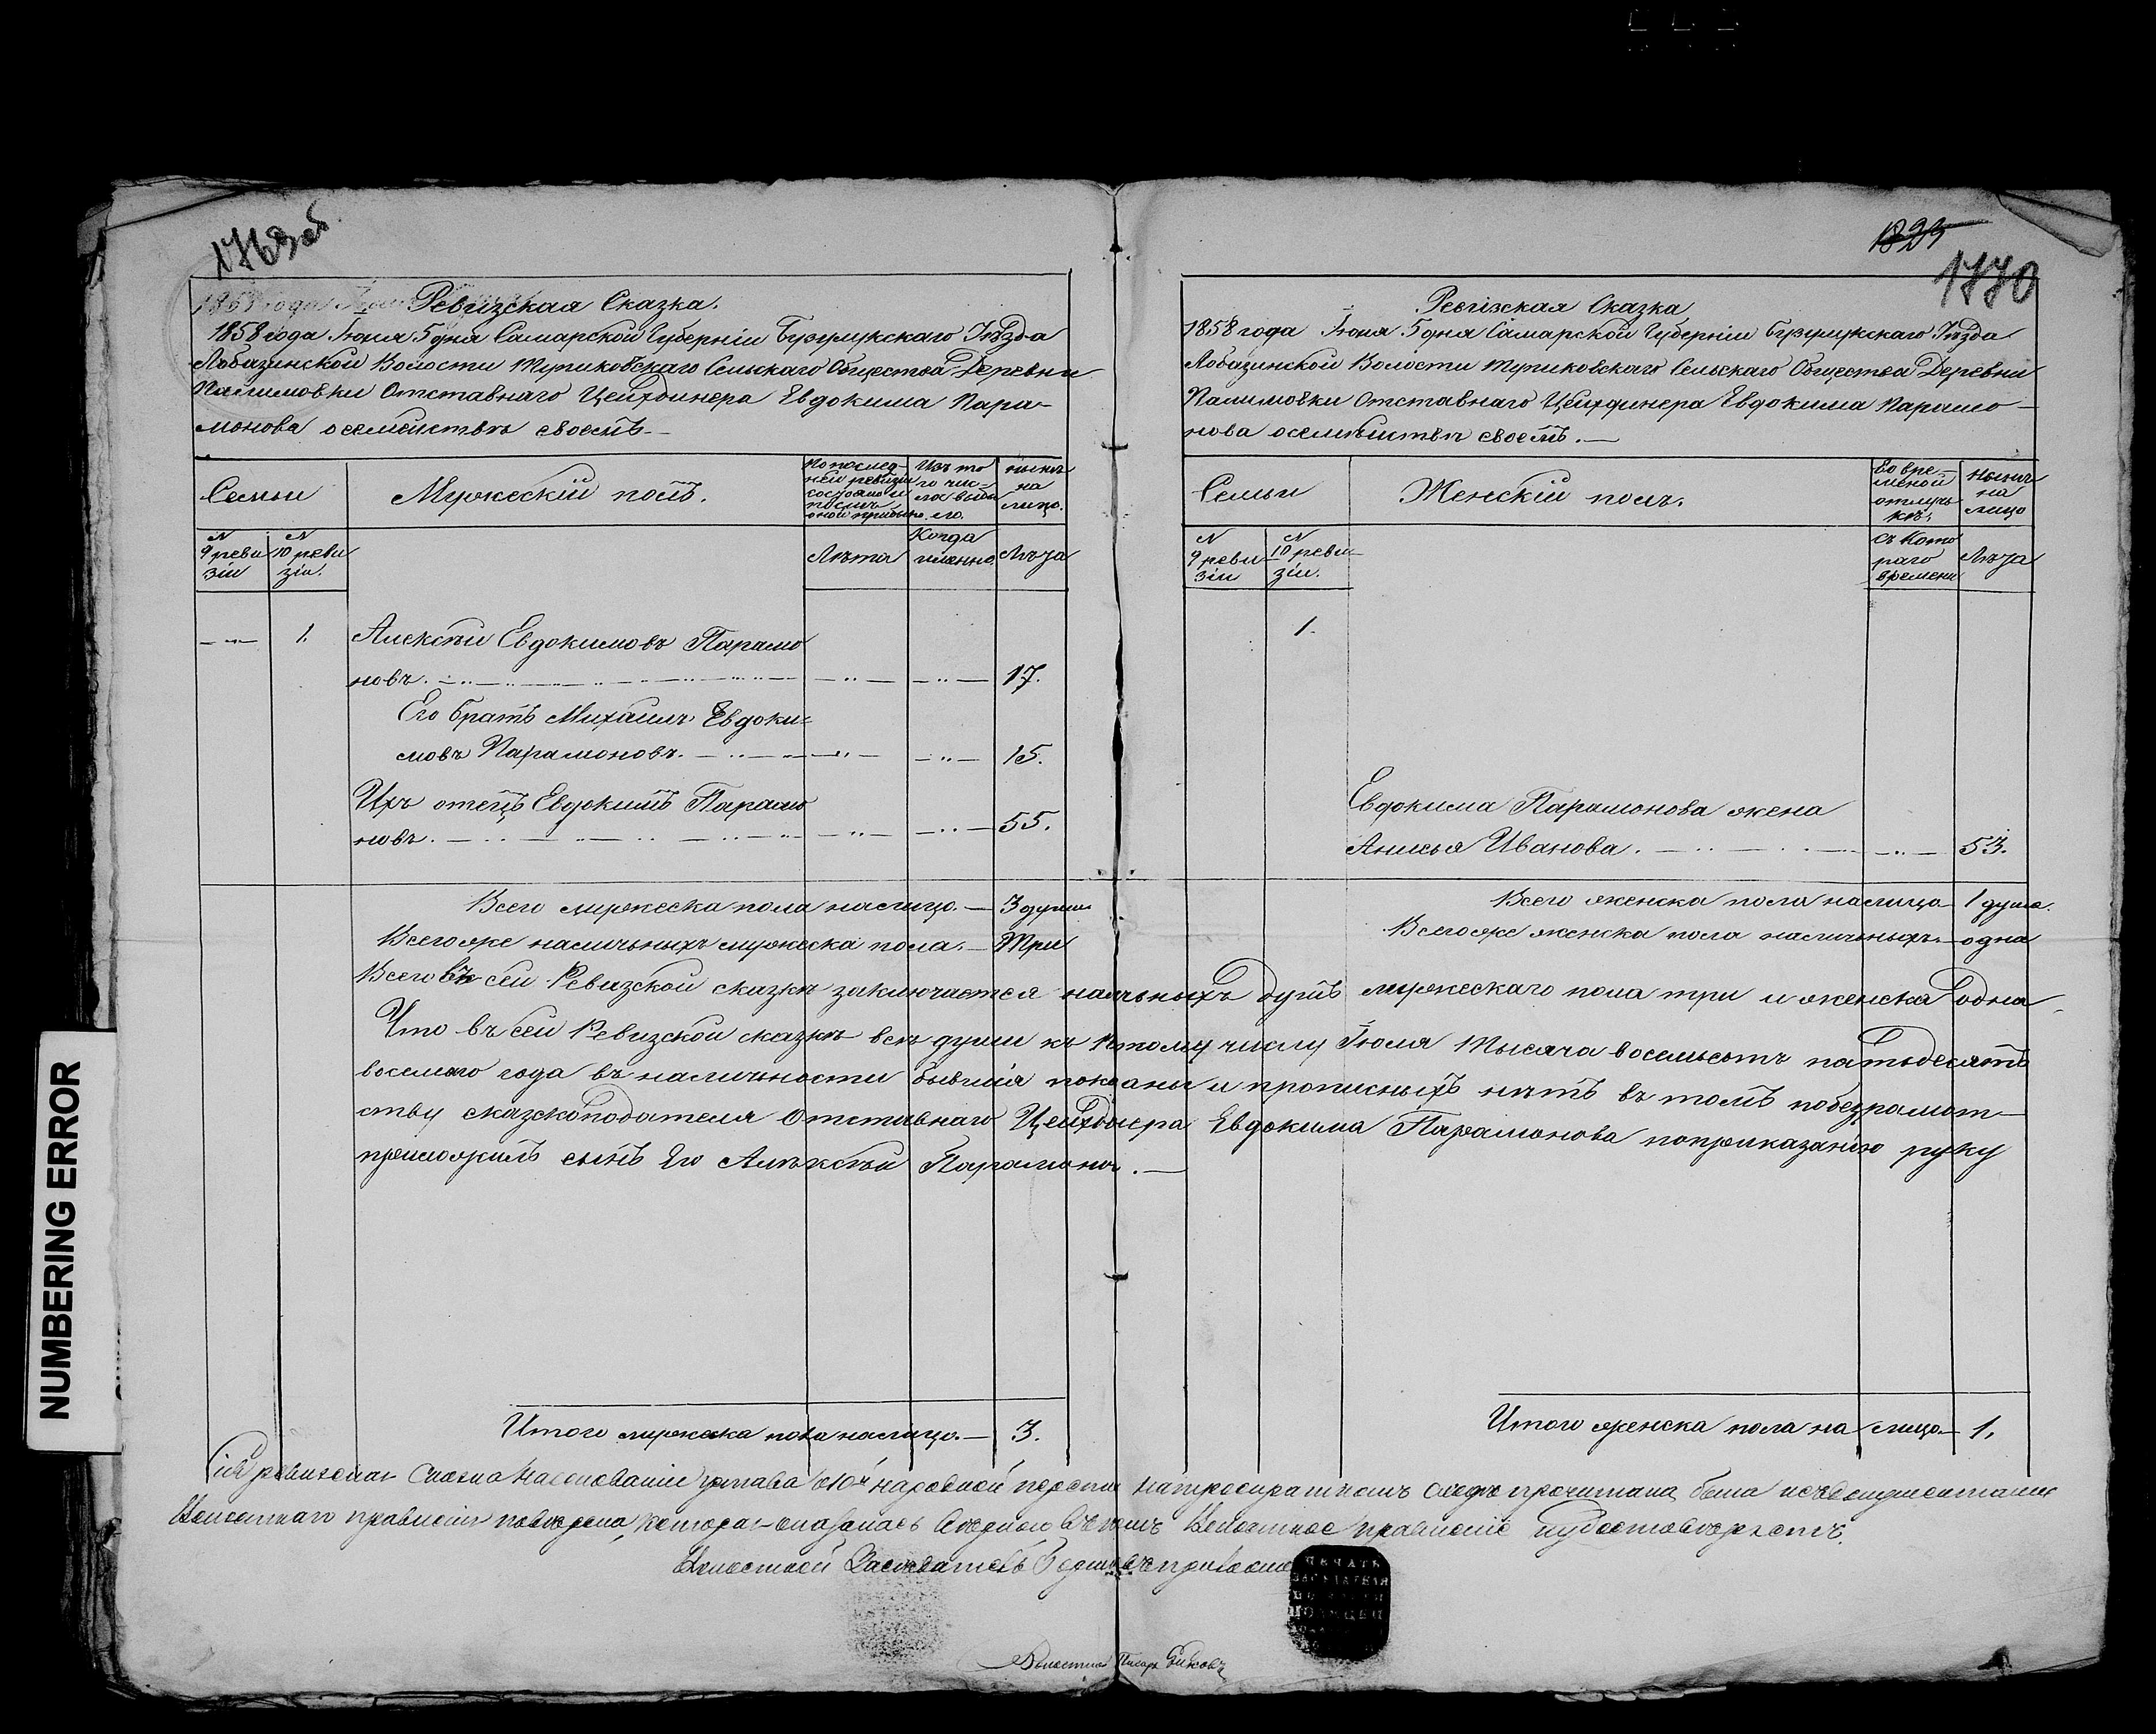 1769 об
Ревизская Сказка.
1858 года Іюня 5 дня Самарской Губерніи Бузулукскаго Уѣзда
Лобазинской Волости Туриковскаго Сельскаго Общества Деревни
Палимовки Отставнаго Цейхдинера Евдокима Пара-
монова о семействѣ своемъ.—
Семьи
Мужескій полъ.
По послед-
ней ревизіи
состояло и
послѣ
оной прибыло.
Изъ то
го чис-
ла выбы
ло.
нынѣ
на
лицо.
N
9 реви
зіи
N
10 реви
зіи.
Лѣта
Когда
именно.
Лѣта
1.
Алексѣй Евдокимовъ Парамо
новъ. 17.
Его братъ Михаилъ Евдоки-
мовъ Парамоновъ. 15.
Ихъ отецъ Евдокимъ Парамо
новъ. 55.
Всего мужеска пола налицо.— 3 души
Всего же наличныхъ мужеска пола.— Три
1770
Ревизская Сказка
1858 года Іюня 5 дня Самарской Губерніи Бузулукскаго Уѣзда
Лобазинской Волости Туриковскаго Сельскаго Общества Деревни
Палимовки Отставнаго Цейхдинера Евдокима Парамо-
нова о семѣйствѣ своемъ.—
Семьи
Женскій полъ.
Во вре-
менной
отлуч-
кѣ.
Нынѣ
на
лицо
N
9 реви
зіи
N
10 реви-
зіи.
съ кото
раго
времени
Лѣта
1.
Евдокима Парамонова жена
Анисья Иванова. 53.
Всего женска пола налицо— 1 душа.
Всего же женска пола наличныхъ.— одна
Всего въ сей Ревизской сказкѣ заключается наличныхъ душъ мужескаго пола три и женска одна
Что въ сей Ревизской сказкѣ всѣ души къ 1 тому числу Іюля Тысяча восемьсотъ пятьдесятъ
восьмого года въ наличности бывшія показаны и прописныхъ нѣтъ въ томъ по безграмот-
ству сказскоподателя Отставнаго Цейхдинера Евдокима Парамонова по приказанію руку
приложилъ сынъ Его Алѣксѣй Парамоновъ.—
Итого мужеска пола налицо.— 3.
Итого женска пола на лицо— 1.
Сія ревизская Сказка на основаніи устава о 10й народной переписи на прочитана была
Волостнаго правленія повѣрена, которая оказалась Волостное правленіе и удостовѣряетъ.
Волостной Засѣдатель
ПЕЧАТЬ
Волостной Писарь
NUMBERING ERROR